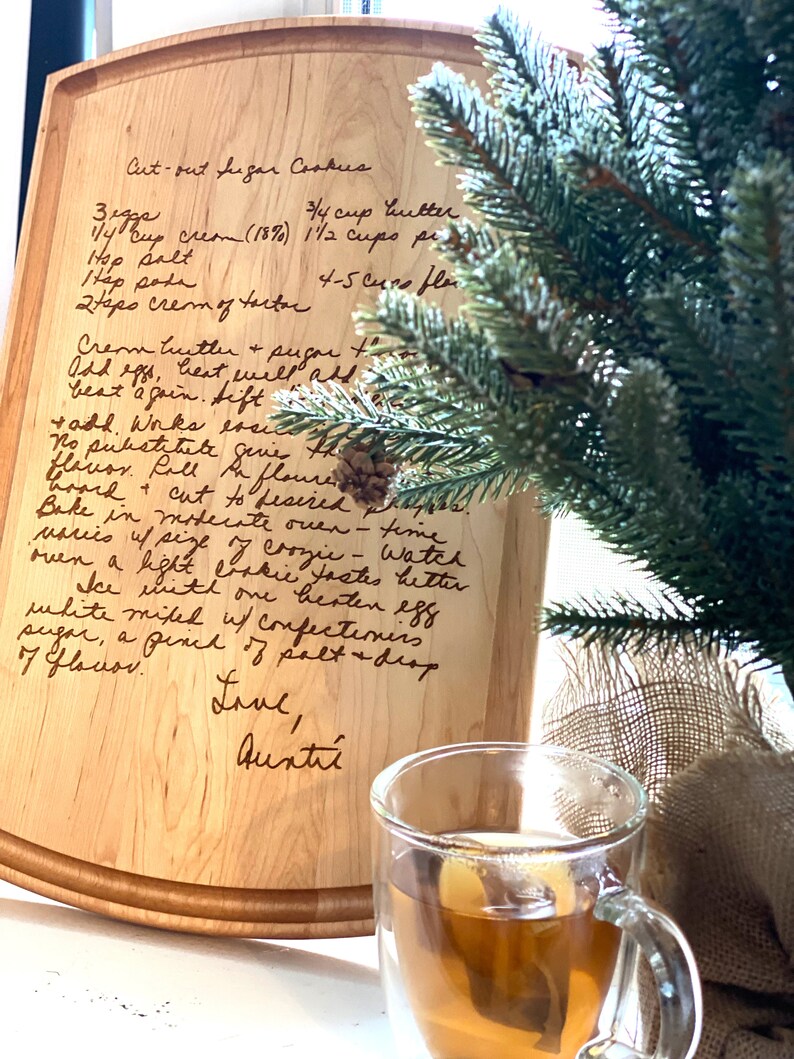 Cut-out Sugar Cookies
3 eggs 3/4 cup butter
1/4 cup cream (18%) 1 1/2 cups
1 tsp salt
1 tsp soda 4-5 cups
2 tsps cream of tartar
Cream butter + sugar
Add eggs, beat well add
beat again. Sift
+ add. Works easier
No substitute gives
flavor. Roll on
board + cut to desired shapes.
Bake in moderate oven - time
varies w/ size of coozie - Watch
oven a light cookie tastes better
Ice with one beaten egg
white mixed w/ confectioners
sugar, a pinch of salt + drop
of flavor.
Love,
Auntie